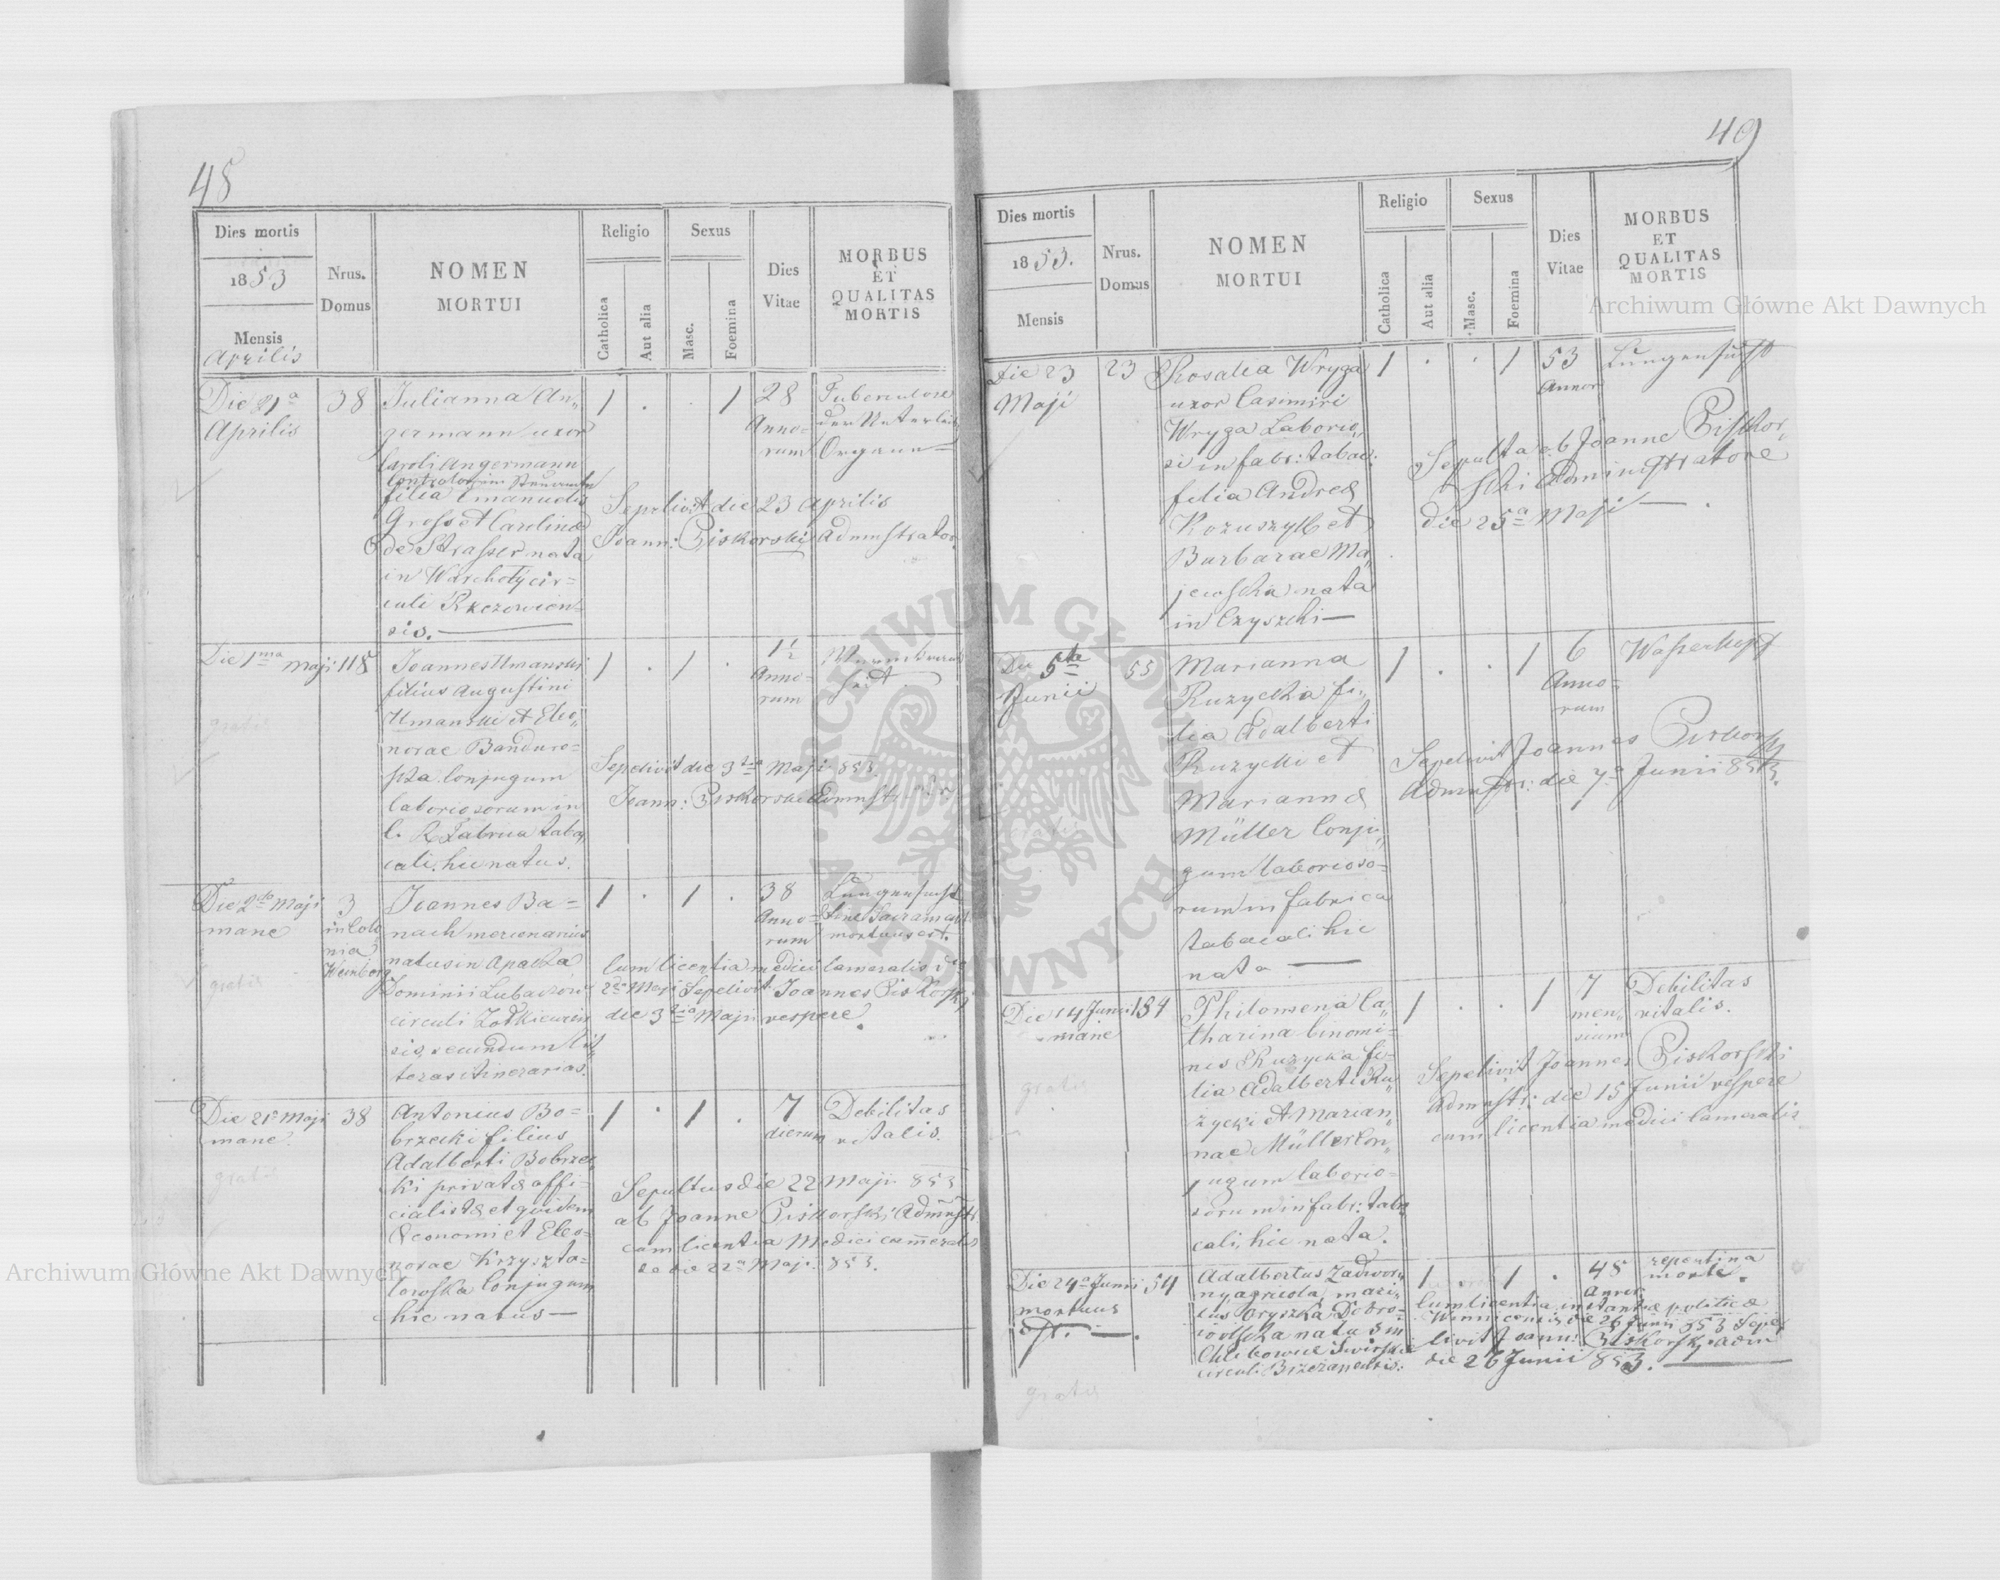 48
Dies mortis
1853
Mensis
Aprilis
Nrus.
Domus
NOMEN
MORTUI
Religio
Catholica
Aut alia
Sexus
Masc.
Foemina
Dies
Vitae
MORBUS
ET
QUALITAS
MORTIS
Die 21a
Aprilis
38
Julianna An„
germann uxor
Caroli Angermann
filia Emanuelis
Gross et Carolinae
de Strasser nata
in Warcholy cir=
culi Rzezovien
sis.
1 . . 1
28
Anno=
rum
Tuberculose
der Unterleib
Organe
Sepelivit die 23 Aprilis
Joann: Piskorski Administrator
Die 1ma Maji
118
gratis
Joannes Umanski
filius Augustini
Umanski et Eleo„
norae Bandure=
ska Conjugum
laboriosorum in
C. R. Fabrica taba„
cali, hic natus.
1 . 1 .
1½
Anno=
rum
Sepelivit die 3tia Maji 853.
Joann: Piskorski Adminstr
Die 2da Maji
mane
gratis
3
in Colo
nia
Weinberg
Joannes Ba=
nach mercenarius
natus in Opaka
Dominii Lubaczow
circuli Zołkiewien
sis, secundum lit„
teras itinerarias.
1 . 1 .
38
Anno=
rum
Lungensucht
Sine Sacrament
mortuus est.
Cum licentia medici Cameralis de
2da Maji Sepelivit Joannes Piskorski
die 3tia Maji vespere.
Die 21a Maji
mane.
gratis
38
Antonius Bo=
brzecki filius
Adalberti Bobrzec„
ki privatae offi=
cialistae et quidem
Economi et Eleo=
norae Krzyszta=
lowska Conjugum
hic natus
1 . 1 .
7
dierum
Debilitas
vitalis.
Sepultus die 22 Maji 853
ab Joanne Piskorski Adminstr
cum licentia Medici cameralis
de die 22a Maji 853.
49
Dies mortis
1853.
Mensis
Nrus.
Domus
NOMEN
MORTUI
Religio
Catholica
Aut alia
Sexus
Masc.
Foemina
Dies
Vitae
MORBUS
ET
QUALITAS
MORTIS
Die 23
Maji
23
Rosalia Wryga
uxor Casimiri
Wryga Laborio„
si in fabr: tabac:
filia Andreae
Kozuszyk et
Barbarae Ma„
jewska nata
in Czyszki
1 . . 1
53
Annor
Lungensucht
Sepulta ab Joanne Piskor„
ski Administratore
die 25a Maji
Die 5ta
Junii
55
Marianna
Ruzycka fi„
lia Adalberti
Ruzycki et
Mariannae
Müller Conju„
gum laborioso=
rum in fabrica
tabacali hic
nata
1 . . 1
6
Anno=
rum
Wasserkopf
Sepelivit Joannes Piskorski
Adminstr: die 7a Junii 853.
Die 14 Junii
mane
gratis
134
Philomena Ca„
tharina binomi=
nis Ruzycka fi=
lia Adalberti Ru„
zycki et Marian„
nae Müller Con„
jugum laborio=
sorum in fabr: taba
cali, hic nata.
1 . . 1
7
men„
sium
Debilitas
vitalis.
Sepelivit Joannes Piskorski
Adminstr: die 15 Junii vespere
cum licentia medici Cameralis
Die 24a Junii
mortuus
est.
gratis
54
Adalbertus Zadwor„
ny, agricola, mari=
tus Oryszka Dobro=
wolska natus in
Chlebowice Swirskie
circuli Brzezanensis:
1 . 1 .
45
Annor
repentina
morte.
Cum licentia instantiae politicae
Winnicensis de 26 Junii 853 Sepe„
livit Joann: Piskorski Adm
die 26 Junii 853.
Archiwum Główne Akt Dawnych
Archiwum Główne Akt Dawnych
ARCHIWUM GŁÓWNE AKT DAWNYCH